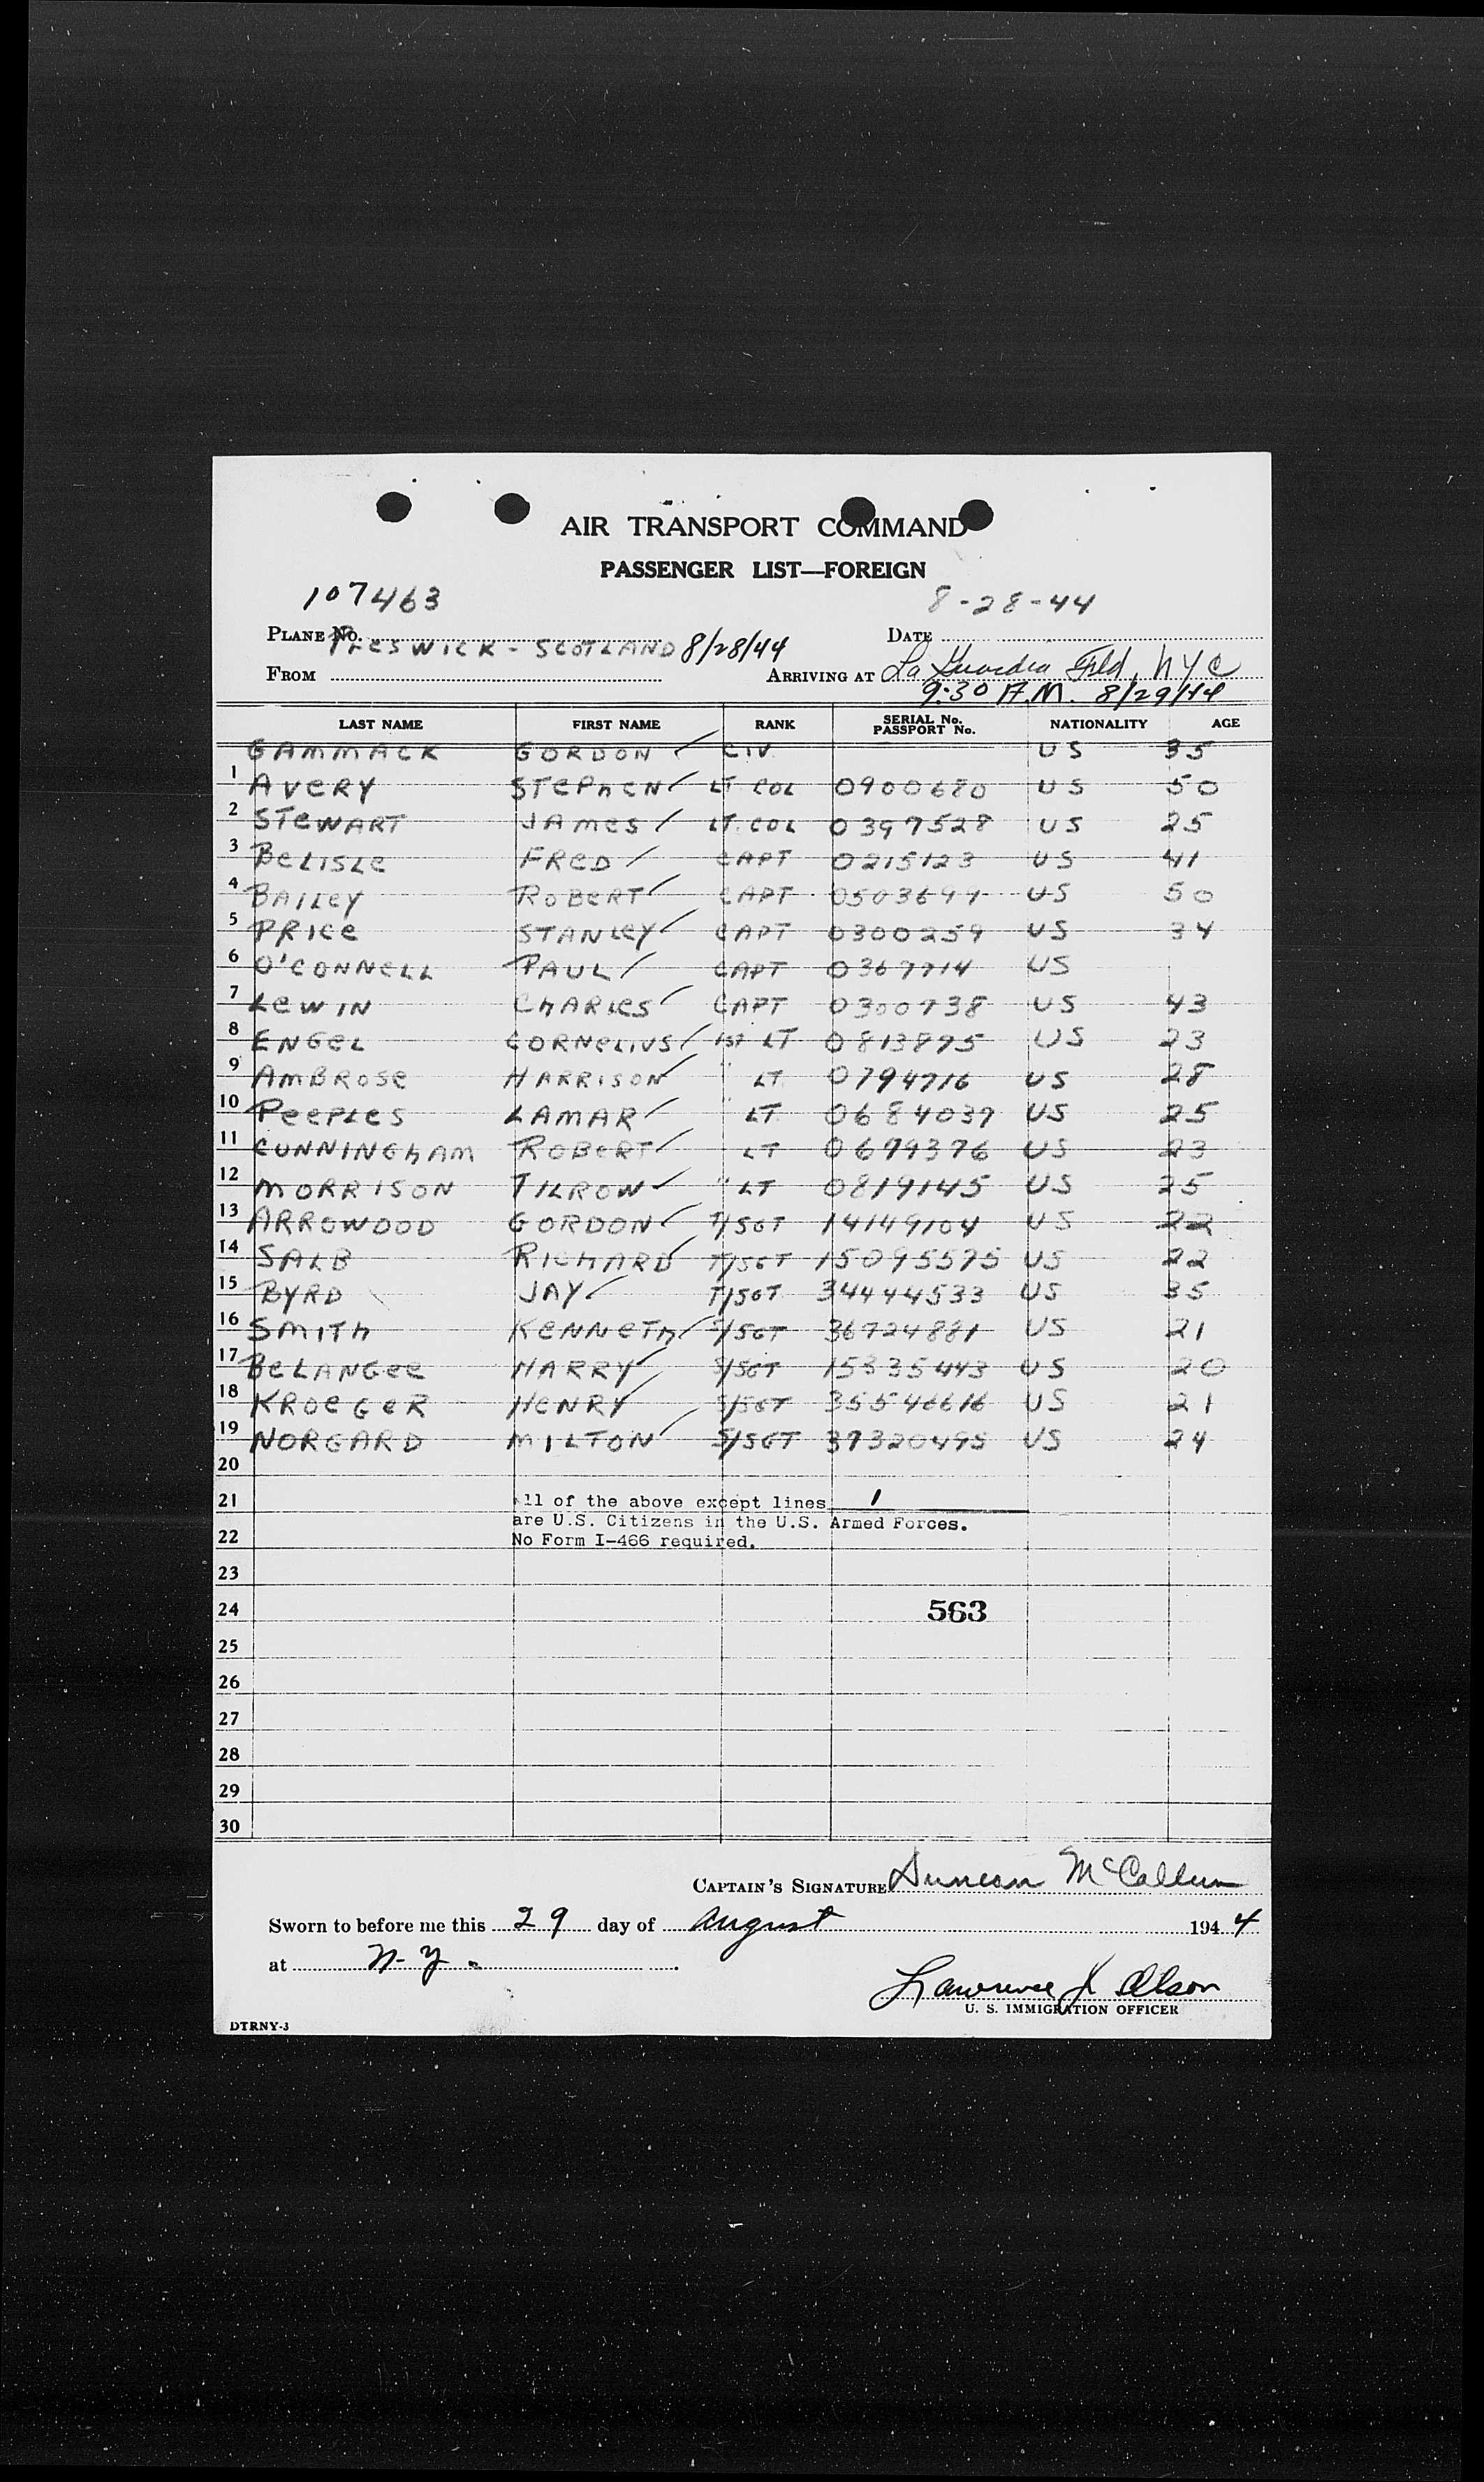 AIR TRANSPORT COMMAND
PASSENGER LIST—FOREIGN
107463 8-28-44
PLANE No. DATE
PRESWICK - SCOTLAND 8/28/44
FROM ARRIVING AT La Guardia Field, NYC
9:30 A.M. 8/29/44
LAST NAME FIRST NAME RANK SERIAL No. PASSPORT No. NATIONALITY AGE
GAMMACK GORDON CIV US 35
1 AVERY STEPHEN LT COL 0900680 US 50
2 STEWART JAMES LT. COL 0397528 US 25
3 BELISLE FRED CAPT 0215123 US 41
4 BAILEY ROBERT CAPT US 50
5 PRICE STANLEY CAPT 0300259 US 34
6 O'CONNELL PAUL CAPT US
7 LEWIN CHARLES CAPT 0300738 US 43
8 ENGEL CORNELIUS 1ST LT 0813895 US 23
9 AMBROSE HARRISON " LT 0794716 US 28
10 PEEPLES LAMAR LT 0684037 US 25
11 CUNNINGHAM ROBERT LT 0679376 US 23
12 MORRISON TILROW " LT 0819145 US 25
13 ARROWOOD GORDON T/SGT 14149104 US 22
14 SALB RICHARD T/SGT 15095575 US 22
15 BYRD JAY T/SGT 34444533 US 35
16 SMITH KENNETH S/SGT 36724881 US 21
17 BELANGEE HARRY S/SGT 15335443 US 20
18 KROEGER HENRY S/SGT 35546616 US 21
19 NORGARD MILTON S/SGT 37320495 US 24
20
21 All of the above except lines 1
are U.S. Citizens in the U.S. Armed Forces.
22 No Form I-466 required.
23
24 563
25
26
27
28
29
30
CAPTAIN'S SIGNATURE Duncan McCallum
Sworn to before me this 29 day of August 1944
at N.Y.
Lawrence J Olson
U. S. IMMIGRATION OFFICER
DTRNY-3